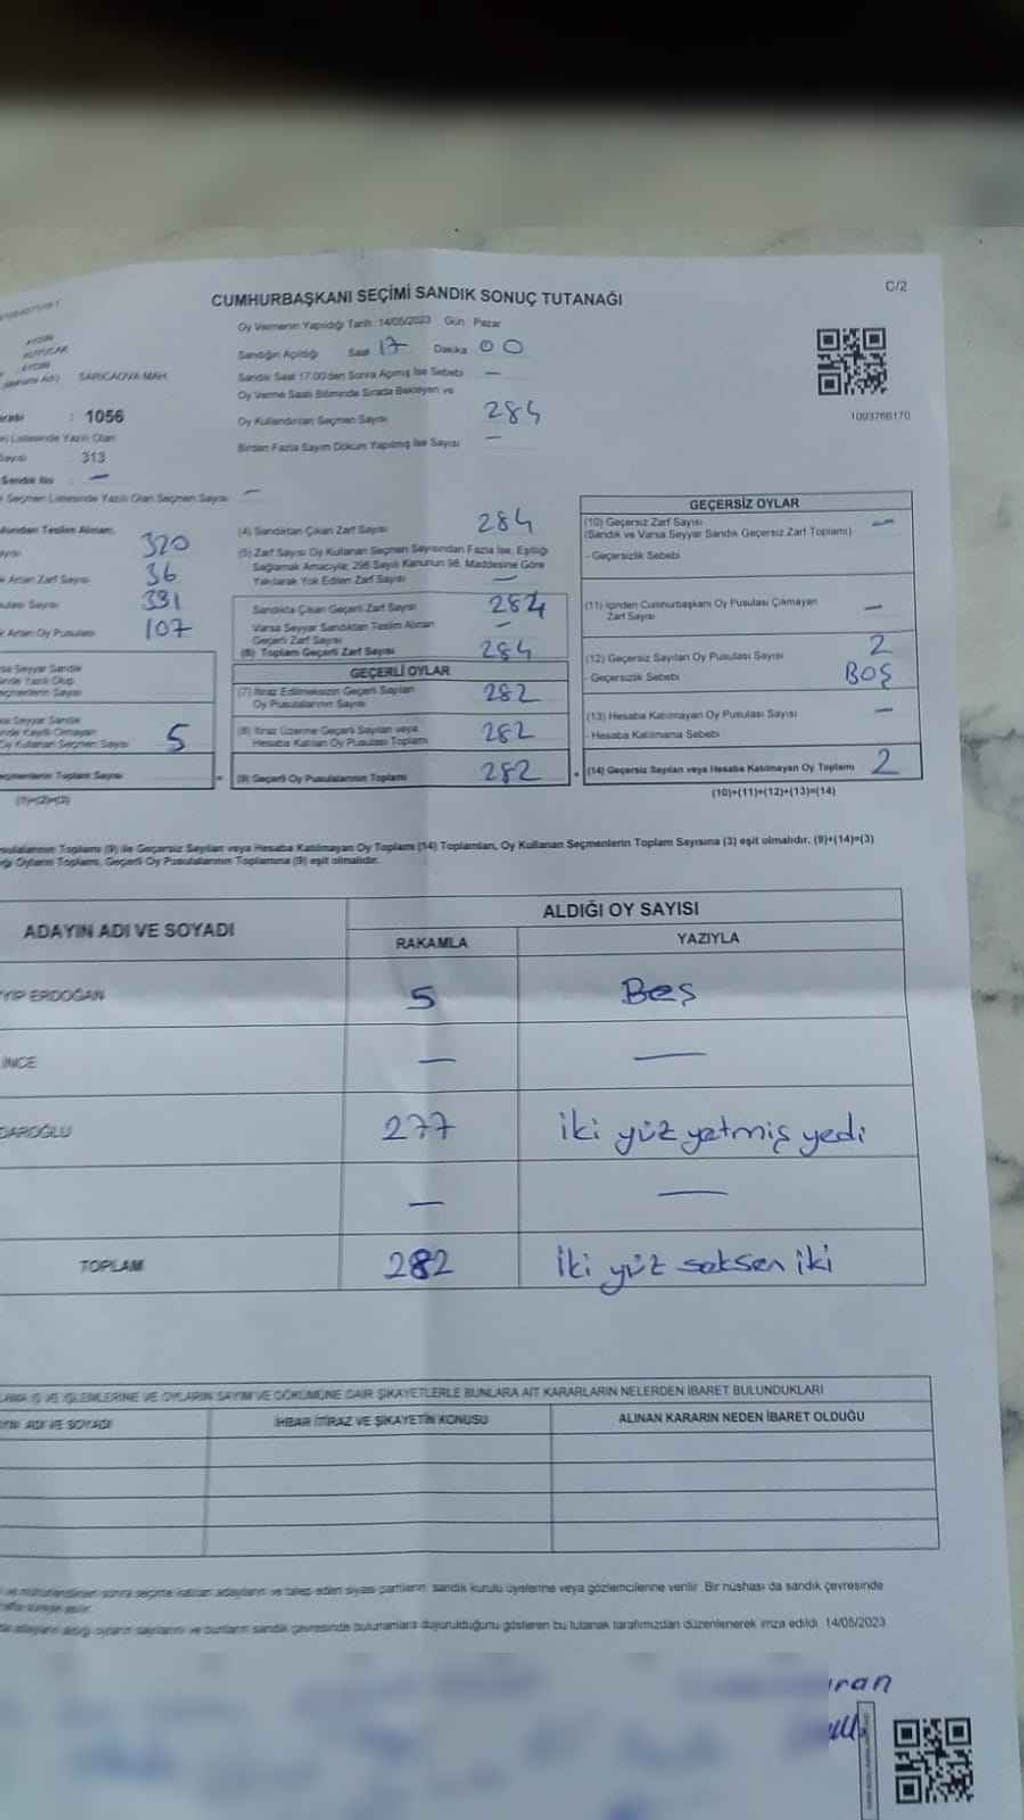 C/2
CUMHURBAŞKANI SEÇİMİ SANDIK SONUÇ TUTANAĞI
Oy Vermenin Yapıldığı Tarih : 14/05/2023 Gün : Pazar
Sandığın Açıldığı Saat 17 Dakika 00
SARICAOVA MAH.
Sandık Saat 17.00'den Sonra Açılmış İse Sebebi —
Oy Verme Saati Bitiminde Sırada Bekleyen ve
: 1056
Oy Kullandırılan Seçmen Sayısı 284
1003766170
Listesinde Yazılı Olan
Birden Fazla Sayım Döküm Yapılmış İse Sayısı —
313
Sandık No —
Seçmen Listesinde Yazılı Olan Seçmen Sayısı —
Teslim Alınan
320
Artan Zarf Sayısı 36
391
Artan Oy Pusulası 107
5
(1)+(2)=(3)
(4) Sandıktan Çıkan Zarf Sayısı 284
(5) Zarf Sayısı Oy Kullanan Seçmen Sayısından Fazla İse, Eşitliği
Sağlamak Amacıyla, 298 Sayılı Kanunun 98. Maddesine Göre
Yakılarak Yok Edilen Zarf Sayısı —
Sandıkta Çıkan Geçerli Zarf Sayısı 284
Varsa Seyyar Sandıktan Teslim Alınan
Geçerli Zarf Sayısı —
(6) Toplam Geçerli Zarf Sayısı 284
GEÇERLİ OYLAR
(7) İtiraz Edilmeksizin Geçerli Sayılan
Oy Pusulalarının Sayısı 282
(8) İtiraz Üzerine Geçerli Sayılan veya
Hesaba Katılan Oy Pusulası Toplamı 282
(9) Geçerli Oy Pusulalarının Toplamı 282
GEÇERSİZ OYLAR
(10) Geçersiz Zarf Sayısı —
(Sandık ve Varsa Seyyar Sandık Geçersiz Zarf Toplamı)
- Geçersizlik Sebebi
(11) İçinden Cumhurbaşkanı Oy Pusulası Çıkmayan
Zarf Sayısı —
(12) Geçersiz Sayılan Oy Pusulası Sayısı 2
- Geçersizlik Sebebi BOŞ
(13) Hesaba Katılmayan Oy Pusulası Sayısı —
- Hesaba Katılmama Sebebi
(14) Geçersiz Sayılan veya Hesaba Katılmayan Oy Toplamı 2
(10)+(11)+(12)+(13)=(14)
Toplamı (9) ile Geçersiz Sayılan veya Hesaba Katılmayan Oy Toplamı (14) Toplamları, Oy Kullanan Seçmenlerin Toplam Sayısına (3) eşit olmalıdır. (9)+(14)=(3)
Oyların Toplamı, Geçerli Oy Pusulalarının Toplamına (9) eşit olmalıdır.
ADAYIN ADI VE SOYADI ALDIĞI OY SAYISI
RAKAMLA YAZIYLA
YİP ERDOĞAN 5 Beş
İNCE — —
DAROĞLU 277 iki yüz yetmiş yedi
— —
TOPLAM 282 iki yüz seksen iki
İŞ VE İŞLEMLERİNE VE OYLARIN SAYIM VE DÖKÜMÜNE DAİR ŞİKAYETLERLE BUNLARA AİT KARARLARIN NELERDEN İBARET BULUNDUKLARI
ADI VE SOYADI İHBAR İTİRAZ VE ŞİKAYETİN KONUSU ALINAN KARARIN NEDEN İBARET OLDUĞU
sonra seçime katılan adayların ve talep eden siyasi partilerin sandık kurulu üyelerine veya gözlemcilerine verilir. Bir nüshası da sandık çevresinde
sandık çevresinde bulunanlara duyurulduğunu gösteren bu tutanak tarafımızdan düzenlenerek imza edildi. 14/05/2023
ıran